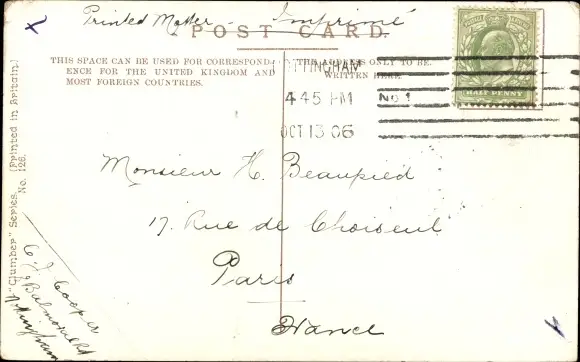 Printed Matter - Imprimé
POST CARD.
THIS SPACE CAN BE USED FOR CORRESPOND-
ENCE FOR THE UNITED KINGDOM AND
MOST FOREIGN COUNTRIES.
THE ADDRESS ONLY TO BE
WRITTEN HERE.
HALF PENNY
TTINGHAM
4 45 PM No. 1
OCT 13 06
Monsieur H. Beaupied
17. Rue de Choiseul
Paris
France
"Clumber" Series. (Printed in Britain)
No. 126.
C. J. Cooper
Balmoral Rd
Nottingham